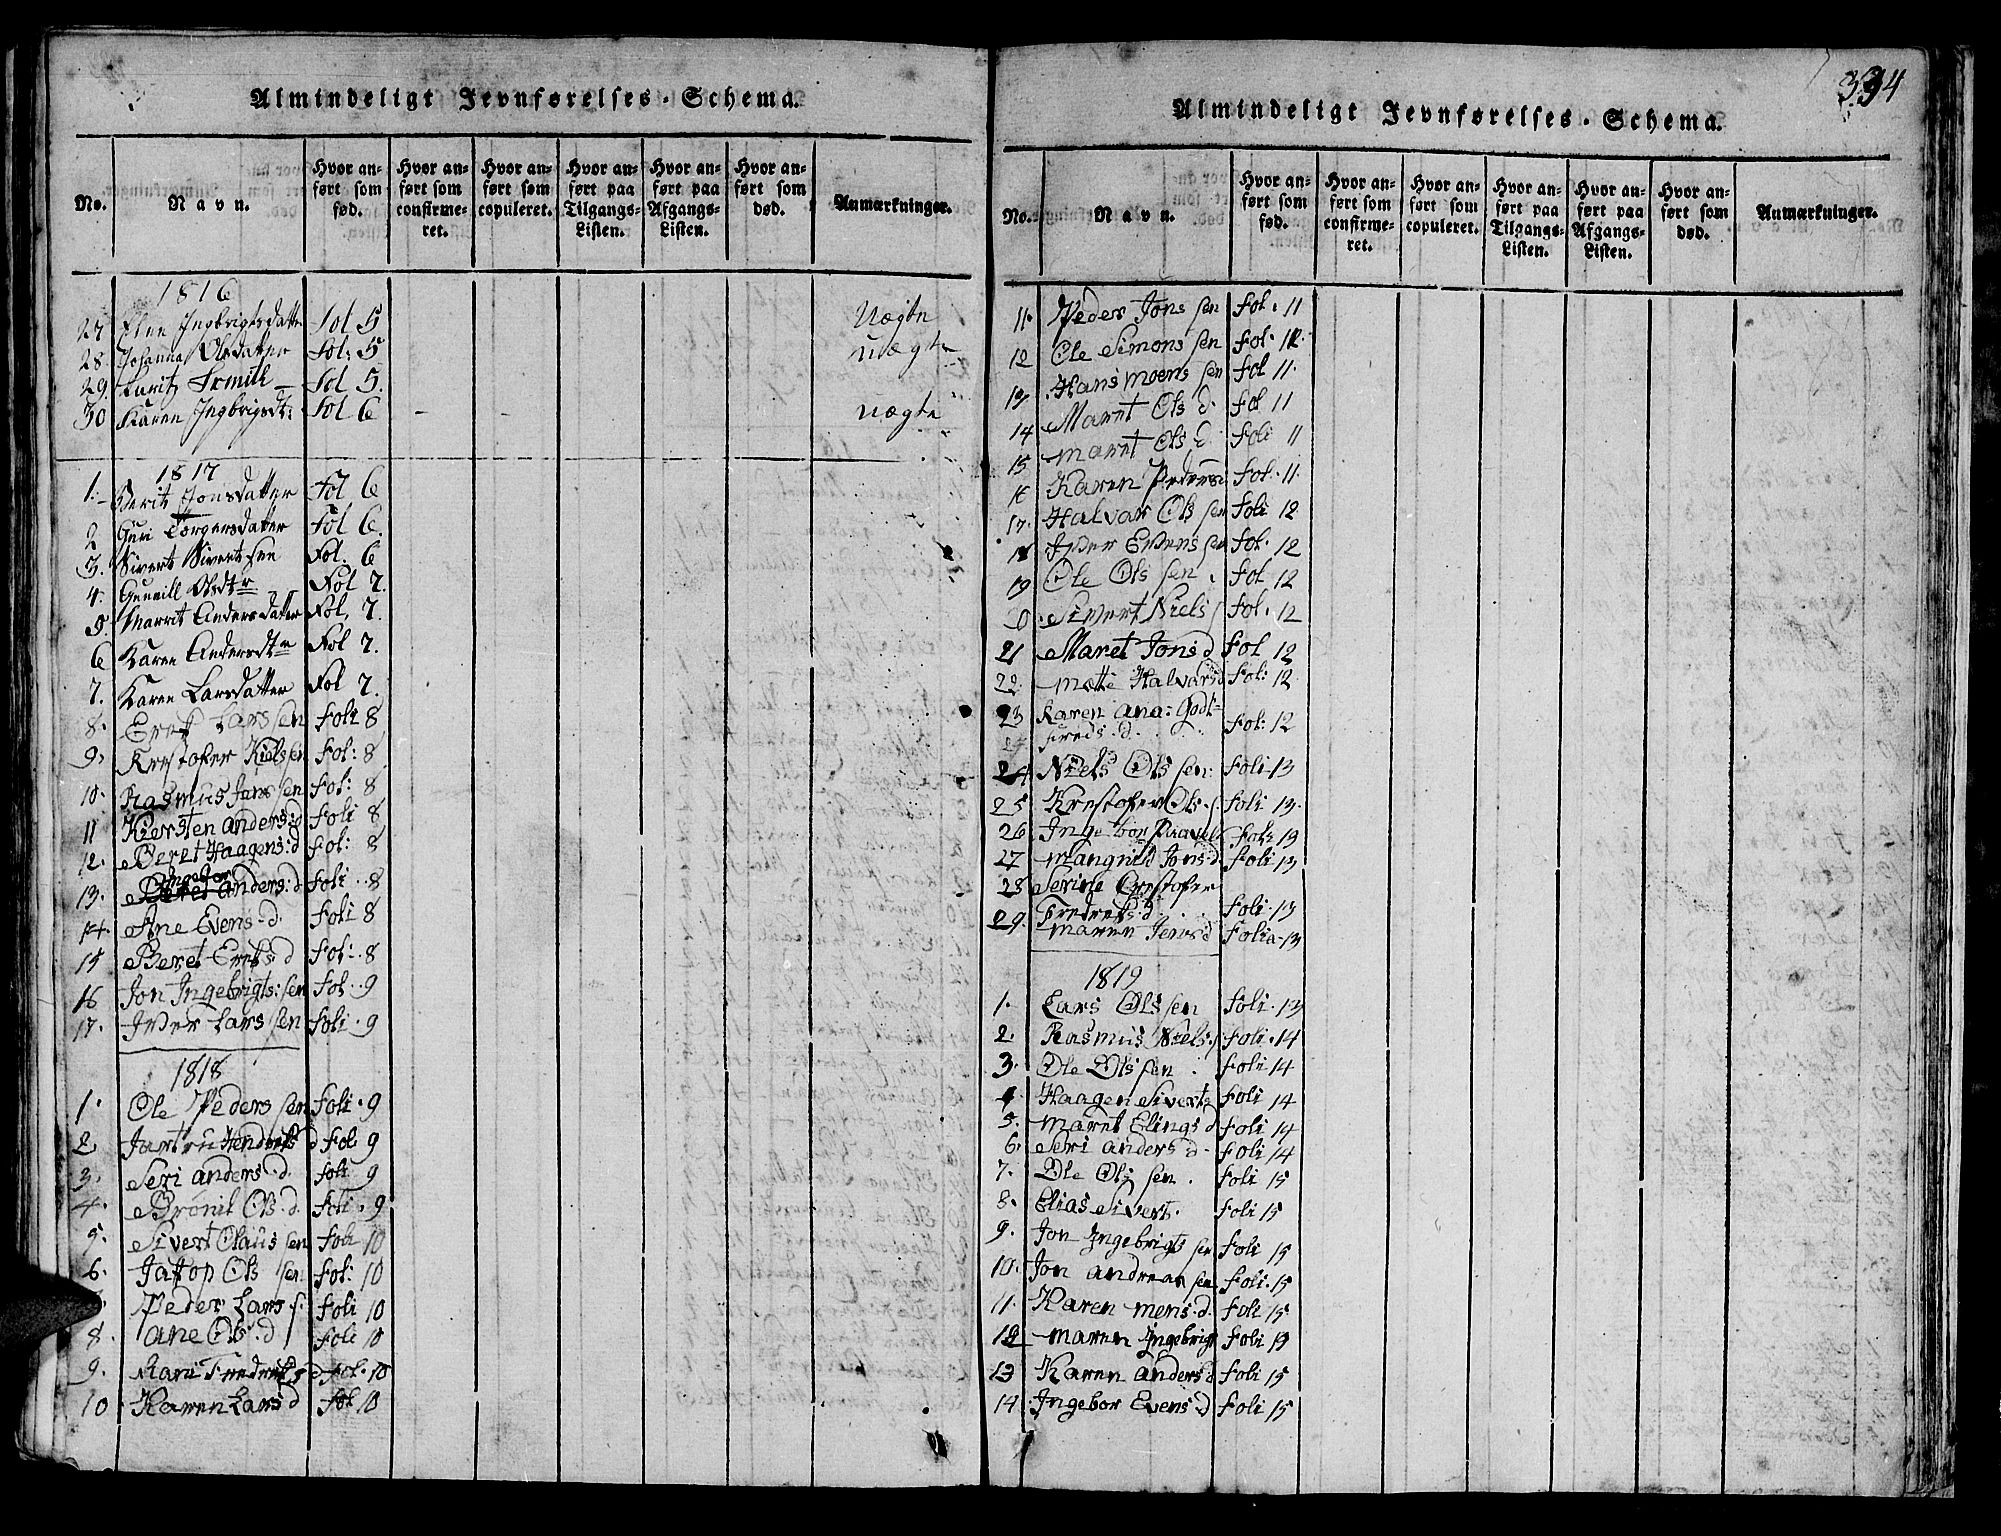 Almindeligt Jevnførelses-Schema.
No. Navn. Hvor anført som fød. Hvor anført som confirmeret. Hvor anført som copuleret. Hvor anført paa Tilgangs-Listen. Hvor anført paa Afgangs-Listen. Hvor anført som død. Anmærkninger.
1816
27 Elen Ingbrigtsdatter Fol 5 Uægte
28. Johanna Olsdatter Fol: 5 uægte
29. Fol 5.
30 Karen Ingbrigsdt: Fol 6 uægte
1817
1. Berit Jonsdatter Fol 6
2 Guri Torgersdatter Fol 6.
3. Sivert Sivertsen Fol. 6
4. Gunnill Olsdtr Fol 7.
5. Marrit Andersdatter Fol. 7.
6 Karen Andersdtr Fol 7.
7. Karen Larsdatter Fol 7.
8. Erek Lars sen foli 8
9. Krestofer Kielssen Fol: 8
10. Rasmus Jans sen fol: 8
11 Kiersten anders:d foli 8
12. Beret Haagens:d fol: 8
13. Ingebor anders:d foli 8
14. Ane Evens.d. foli 8
15 Beret Ereks d fol: 8
16 Jon Ingebrigts:sen fol 9
17. Iver Lars sen foli 9
1818
1. Ole Peders sen foli 9
2. Jartru Hendreks d fol 9
3. Seri anders.d. foli 9
4. Brønil Ols.d. foli 9
5. Sivert Claus sen foli 10
6. Jakop Ols sen fol: 10
Peder Lars s. foli 10
8. ane Ols:d foli 10
9. Mari Fredreks d fol. 10
10 Karen Lars d fol 10

394
Almindeligt Jevnførelses-Schema.
No. Navn. Hvor anført som fød. Hvor anført som confirmeret. Hvor anført som copuleret. Hvor anført paa Tilgangs-Listen. Hvor anført paa Afgangs-Listen. Hvor anført som død. Anmærkninger.
11. Peder Jons sen fol. 11
12 Ole Simons sen fol. 12.
13 Hans moens sen fol 11.
14 Maret Ols d. fol 11
15 maret Ols d foli 11
16 Karen Peders: fol. 11.
17. Halvar Ols sen foli 12
18 Iver Evens sen fol. 12
19 Ole Ols sen fol 12
0 Sivert Niels s fol. 12
21 Maret Jons d fol 12
22. mette Halvars d fol: 12
23 Karen ana: Godt=
freds:d. fol: 12
24 Niels Ols sen foli 13
25 Krestofer Ols. s foli 13.
26 Ingebor Paavels fol: 13
27 mangnild Jons.d. foli 13
28 Serine Crestofer
Fredreks.d. foli. 13
29. maren Jens d Folia 13
1819
1. Lars Ols sen foli. 13
2. Rasmus Niels.s foli. 14
3. Ole Ols sen foli 14
4 Haagen Siverts foli 14
5. maret Elings d foli 14
6. Seri anders d. foli 14
7. Ole Ols sen. foli 15
8. Elias Siverts. foli 15
9. Jon Ingebrigts sen foli 15
10. Jon andreas sen foli. 15
11. Karen mens.d. foli 15
12 maren Ingebrigt foli 15
13 Karen anders d foli 15
14. Ingebor Evens.d foli 15